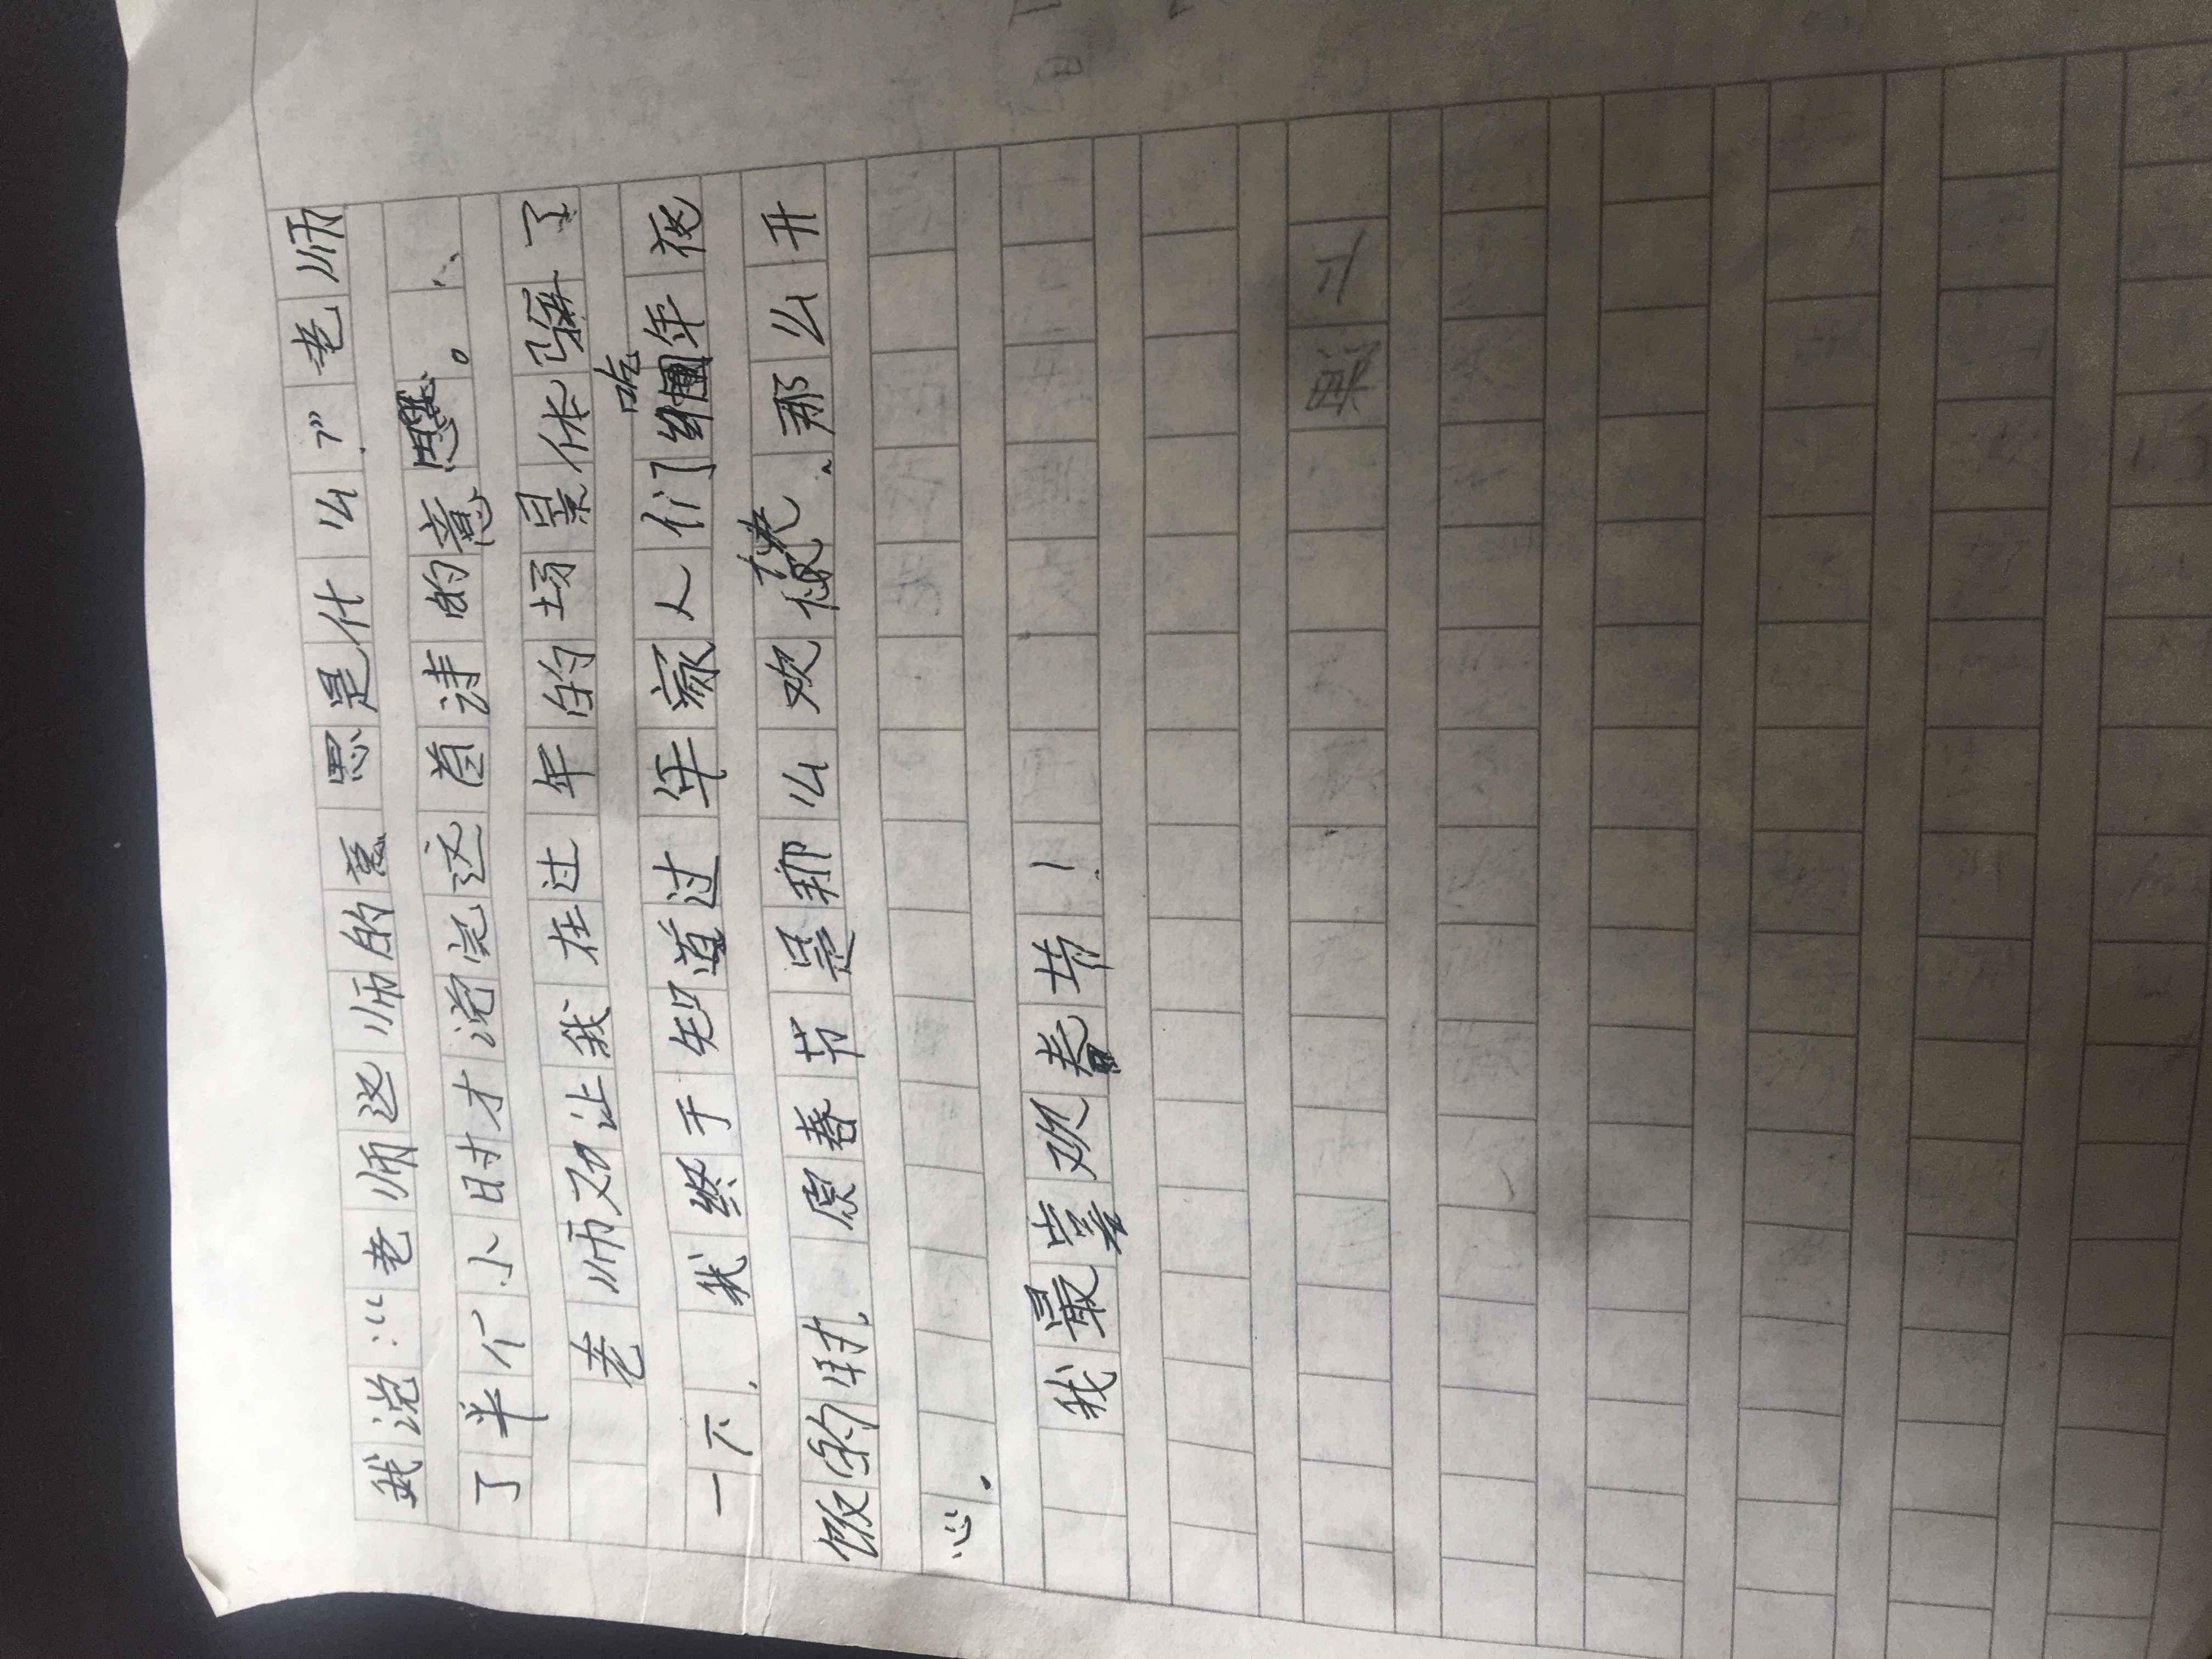 我说：“老师这师的意思是什么？”老师
了半个小时才说完这首诗的意思。
老师劝让我在过年的场景体验了
一下。我终于知道过年家人们吃年夜
饭的时。原春节是那么欢快、那么开
心。
我最喜欢春节！